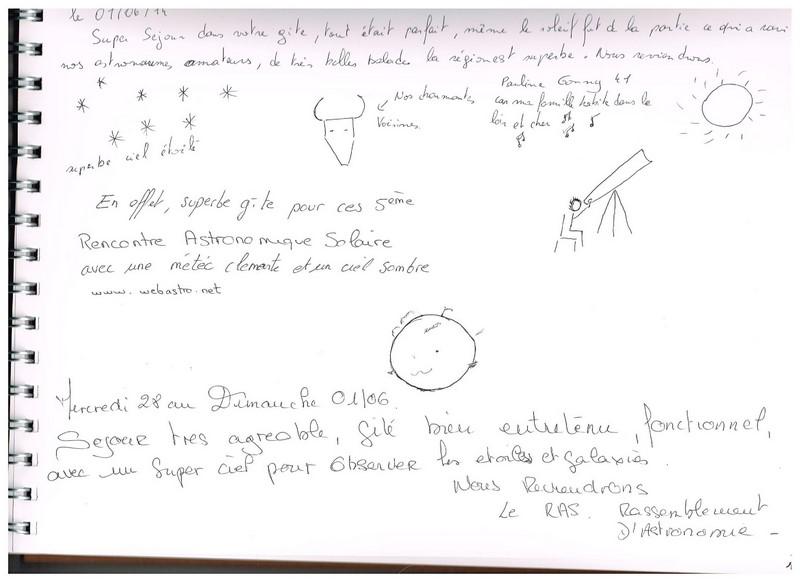 le 01/06/14
Super Séjour dans votre gîte, tout était parfait, même le soleil fut de la partie ce qui a ravi
nos astronomes amateurs, de très belles balades la région est superbe. Nous reviendrons.
Pauline 41
← Nos charmantes
Voisines
car ma famille habite dans le
loir et cher
superbe ciel étoilé
En effet, superbe gîte pour ces 5ème
Rencontre Astronomique Solaire
avec une météo clemente et un ciel sombre
www.webastro.net
Mercredi 28 au Dimanche 01/06.
Sejour tres agreable, Gité bien entretenu, fonctionnel,
avec un Super ciel pour Observer les etoiles et Galaxies.
Nous Reviendrons
Le RAS. Rassemblement
D'Astronomie -